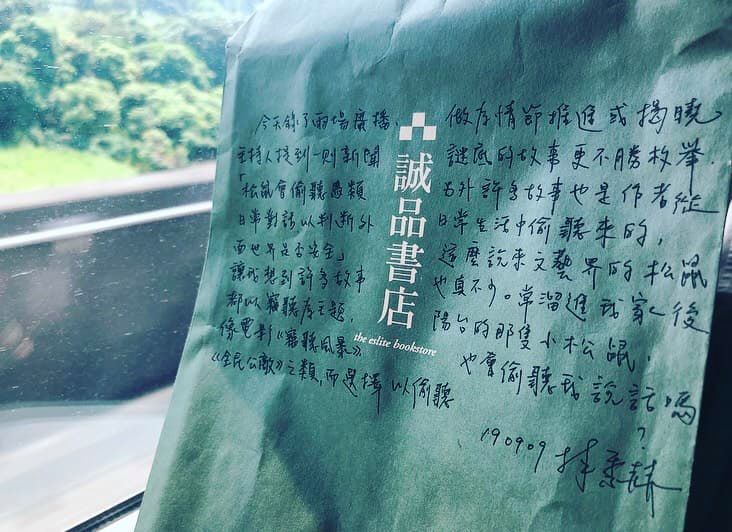 今天錄了兩場廣播，
主持人提到一則新聞
「松鼠會偷聽鳥類
日常對話以判斷外
面世界是否安全」
讓我想到許多故事
都以竊聽為主題，
像電影《竊聽風暴》、
《全民公敵》之類，而選擇以偷聽
誠品書店
the eslite bookstore
做為情節推進或揭曉
謎底的故事更不勝枚舉．
另外許多故事也是作者從
日常生活中偷聽來的，
這麼說來文藝界的松鼠
也真不少。常溜進我家後
陽台的那隻小松鼠，
也會偷聽我說話嗎
？
190909